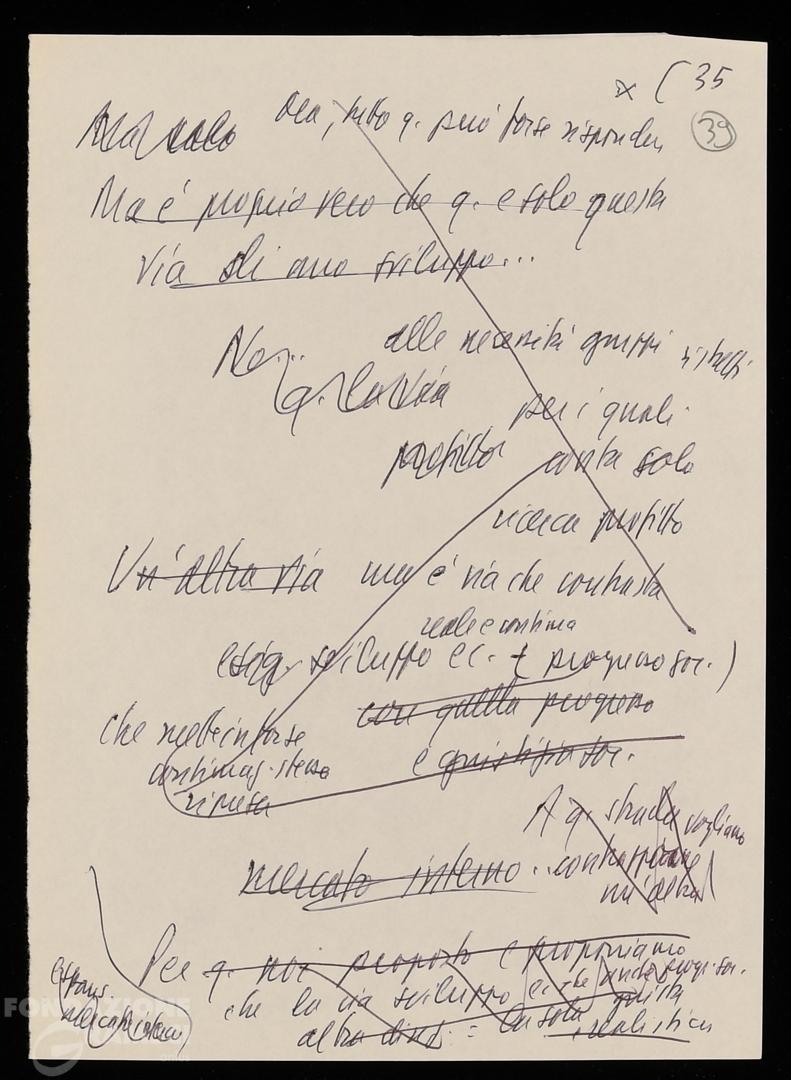 x ( 35
39
Ma solo Ora, tutto q. può forse rispondere
Ma è proprio vero che q. e solo questa
via di uno sviluppo...
No... alle necessità gruppi ristretti
q. la via per i quali
profitto conta solo
ricerca profitto
Un'altra via ma è via che contrasta
reale e continua
esig. sviluppo ec. + progresso soc.)
che mette in forse con quella progresso
continuaz. stessa e giustizia soc.
ripresa
A q. strada vogliamo
mercato interno.. contrapporre
un'altra
Per q. noi proposto e proponiamo
che la via sviluppo ec. che anche progr. soc.
espans. giusta
mercato interno altra = la sola realistica
FONDAZIONE